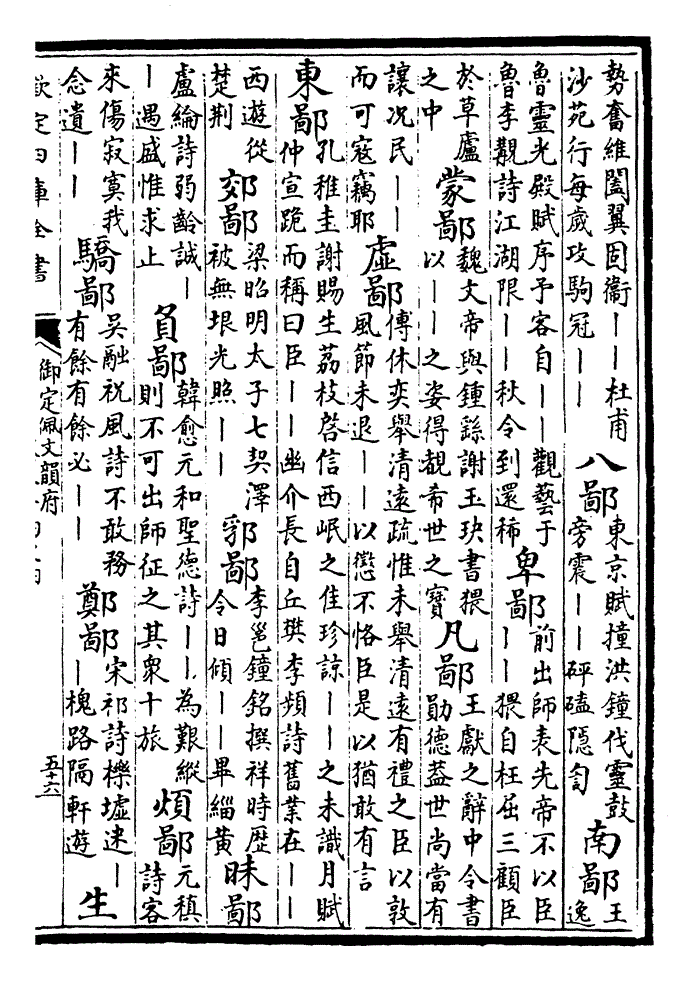 勢奮維闔翼固衞｜｜杜甫沙苑行每歲攻駒冠｜｜八鄙東京賦撞洪鐘伐靈鼓旁震｜｜砰磕隱訇南鄙王逸
魯靈光殿賦序予客自｜｜觀藝于魯李覯詩江湖限｜｜秋令到還稀卑鄙前出師表先帝不以臣｜｜猥自枉屈三顧臣
於草廬之中蒙鄙魏文帝與鍾繇謝玉玦書猥以｜｜之姿得覩希世之寶凡鄙王獻之辭中令書勛德蓋世尚當有
讓况民｜｜而可寇竊耶虛鄙傅休奕舉清遠疏惟未舉清遠有禮之臣以敦風節未退｜｜以懲不恪臣是以猶敢有言
東鄙孔稚圭謝賜生荔枝啓信西岷之佳珍諒｜｜之未識月賦仲宣跪而稱曰臣｜｜幽介長自丘樊李頻詩舊業在｜｜
西遊從楚荆郊鄙梁昭明太子七契澤被無垠光照｜｜郛鄙李邕鐘銘撰祥時歷令日傾｜｜畢緇黃昧鄙
盧綸詩弱齡誠｜｜遇盛惟求止負鄙韓愈元和聖德詩｜｜為艱縱則不可出師征之其衆十旅煩鄙元稹詩客
來傷寂寞我念遺｜｜驕鄙吳融祝風詩不敢務有餘有餘必｜｜鄭鄙宋祁詩櫟墟迷｜｜槐路隔軒遊生
欽定四庫全書
御定佩文韻府
五十六